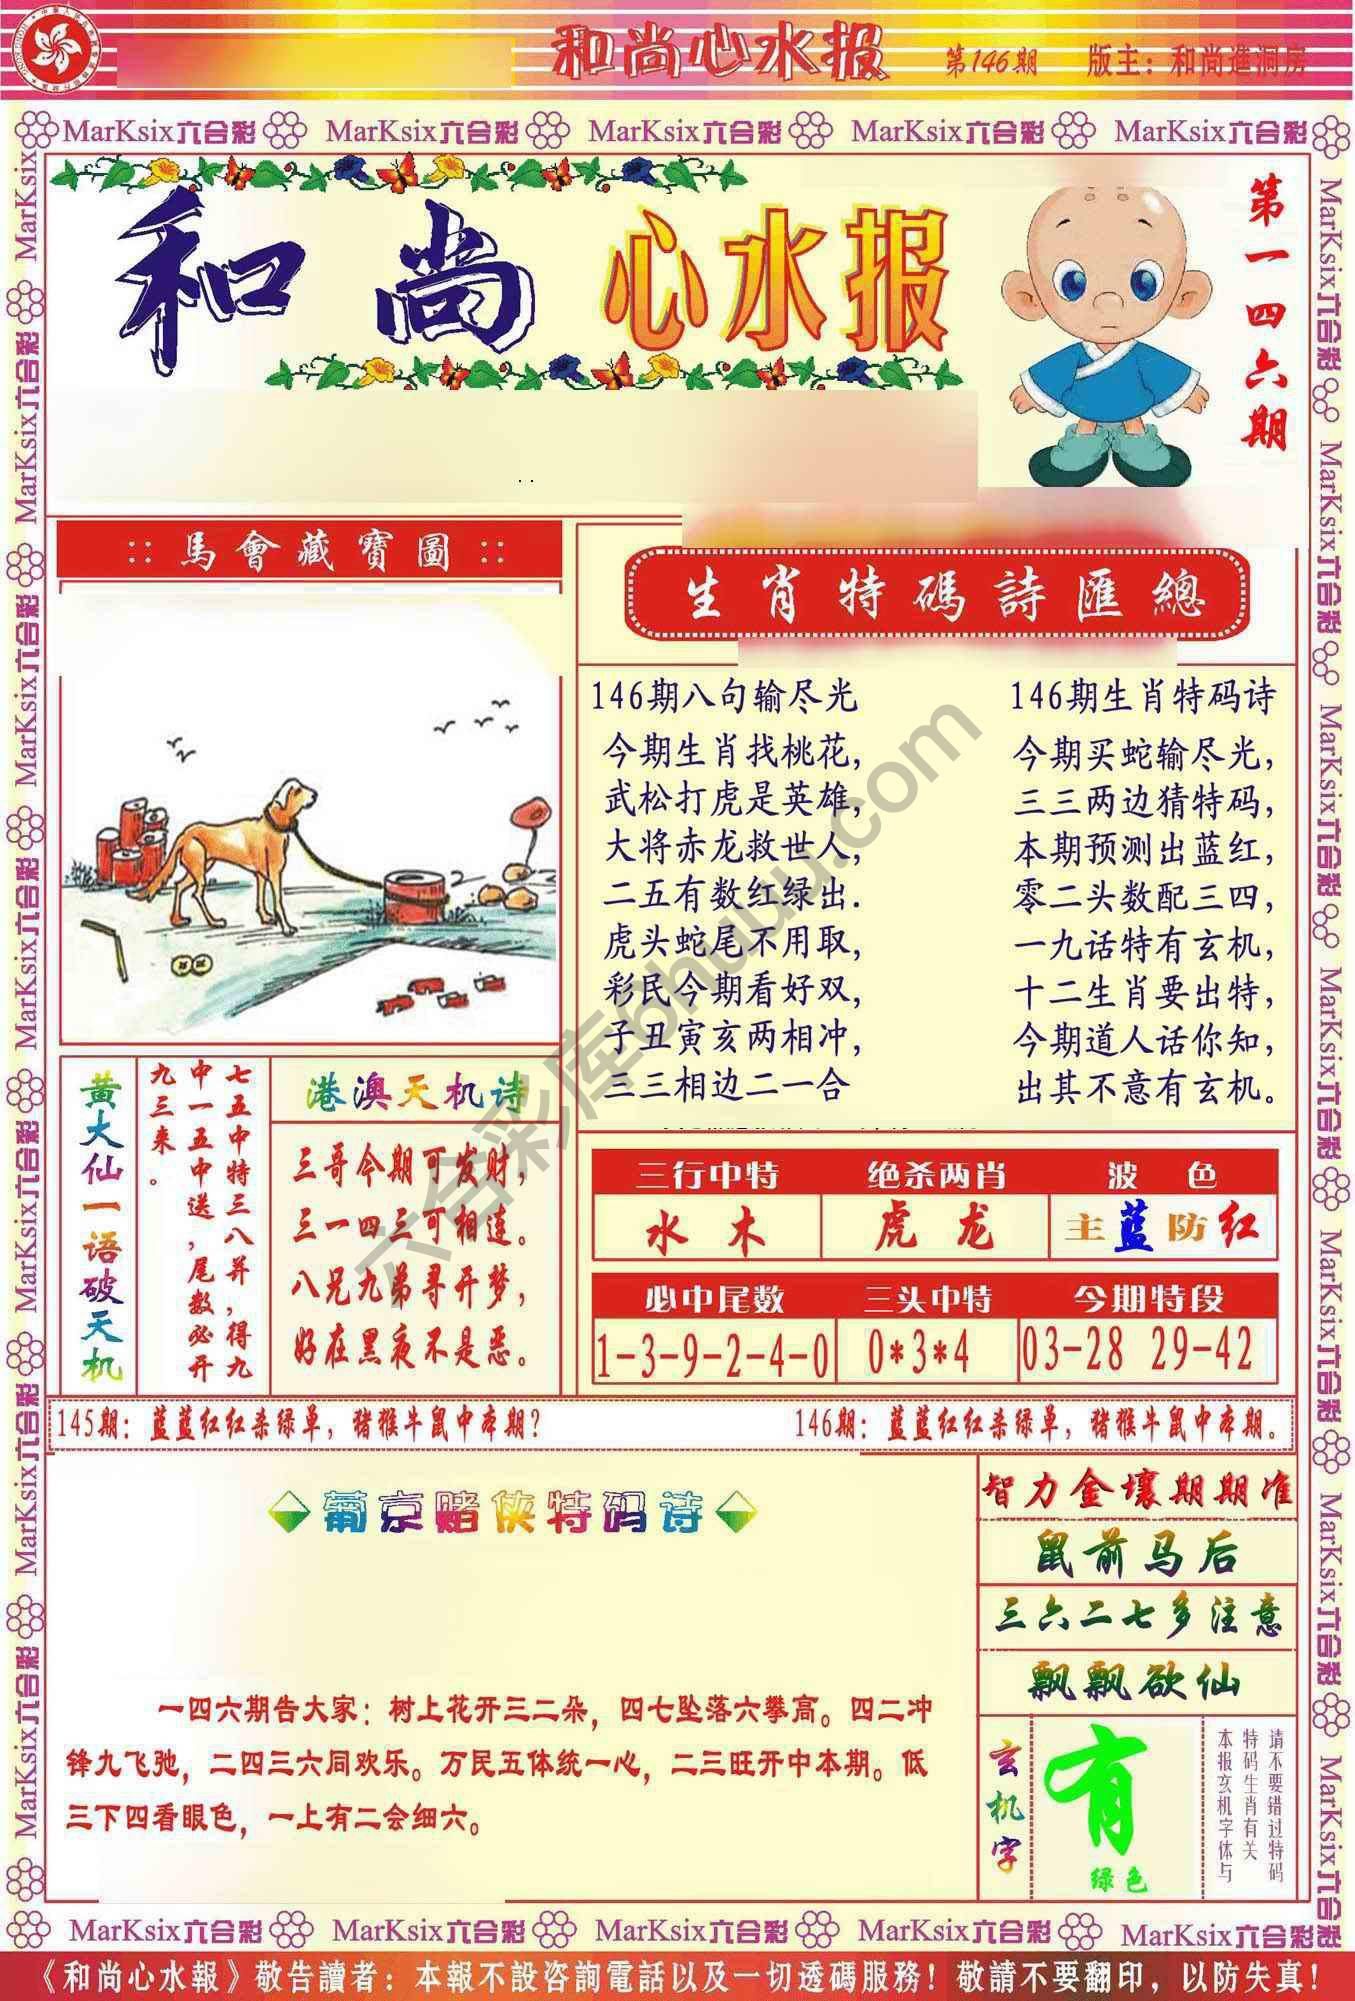 和尚心水报 第146期 版主：和尚進洞房
MarKsix六合彩 MarKsix六合彩 MarKsix六合彩 MarKsix六合彩 MarKsix六合彩
和尚心水报
第一四六期
馬會藏寶圖
生肖特碼詩匯總
146期八句输尽光
今期生肖找桃花，
武松打虎是英雄，
大将赤龙救世人，
二五有数红绿出.
虎头蛇尾不用取，
彩民今期看好双，
子丑寅亥两相冲，
三三相边二一合
146期生肖特码诗
今期买蛇输尽光，
三三两边猜特码，
本期预测出蓝红，
零二头数配三四，
一九话特有玄机，
十二生肖要出特，
今期道人话你知，
出其不意有玄机。
黄大仙一语破天机
七五中特三八并，得九
中一五中送，尾数必开
九三来。
港澳天机诗
三哥今期可发财，
三一四三可相连。
八兄九弟寻开梦，
好在黑夜不是恶。
三行中特 绝杀两肖 波色
水木 虎龙 主蓝防红
必中尾数 三头中特 今期特段
1-3-9-2-4-0 0*3*4 03-28 29-42
145期：蓝蓝红红杀绿单，猪猴牛鼠中本期？ 146期：蓝蓝红红杀绿单，猪猴牛鼠中本期。
葡京赌侠特码诗
一四六期告大家：树上花开三二朵，四七坠落六攀高。四二冲
锋九飞弛，二四三六同欢乐。万民五体统一心，二三旺开中本期。低
三下四看眼色，一上有二会细六。
智力金壤期期准
鼠前马后
三六二七多注意
飘飘欲仙
玄机字
有
绿色
请不要错过特码
特码生肖有关
本报玄机字体与
六合彩库6huuu.com
MarKsix六合彩 MarKsix六合彩 MarKsix六合彩 MarKsix六合彩 MarKsix六合彩
《和尚心水報》敬告讀者：本報不設咨詢電話以及一切透碼服務！敬請不要翻印，以防失真！